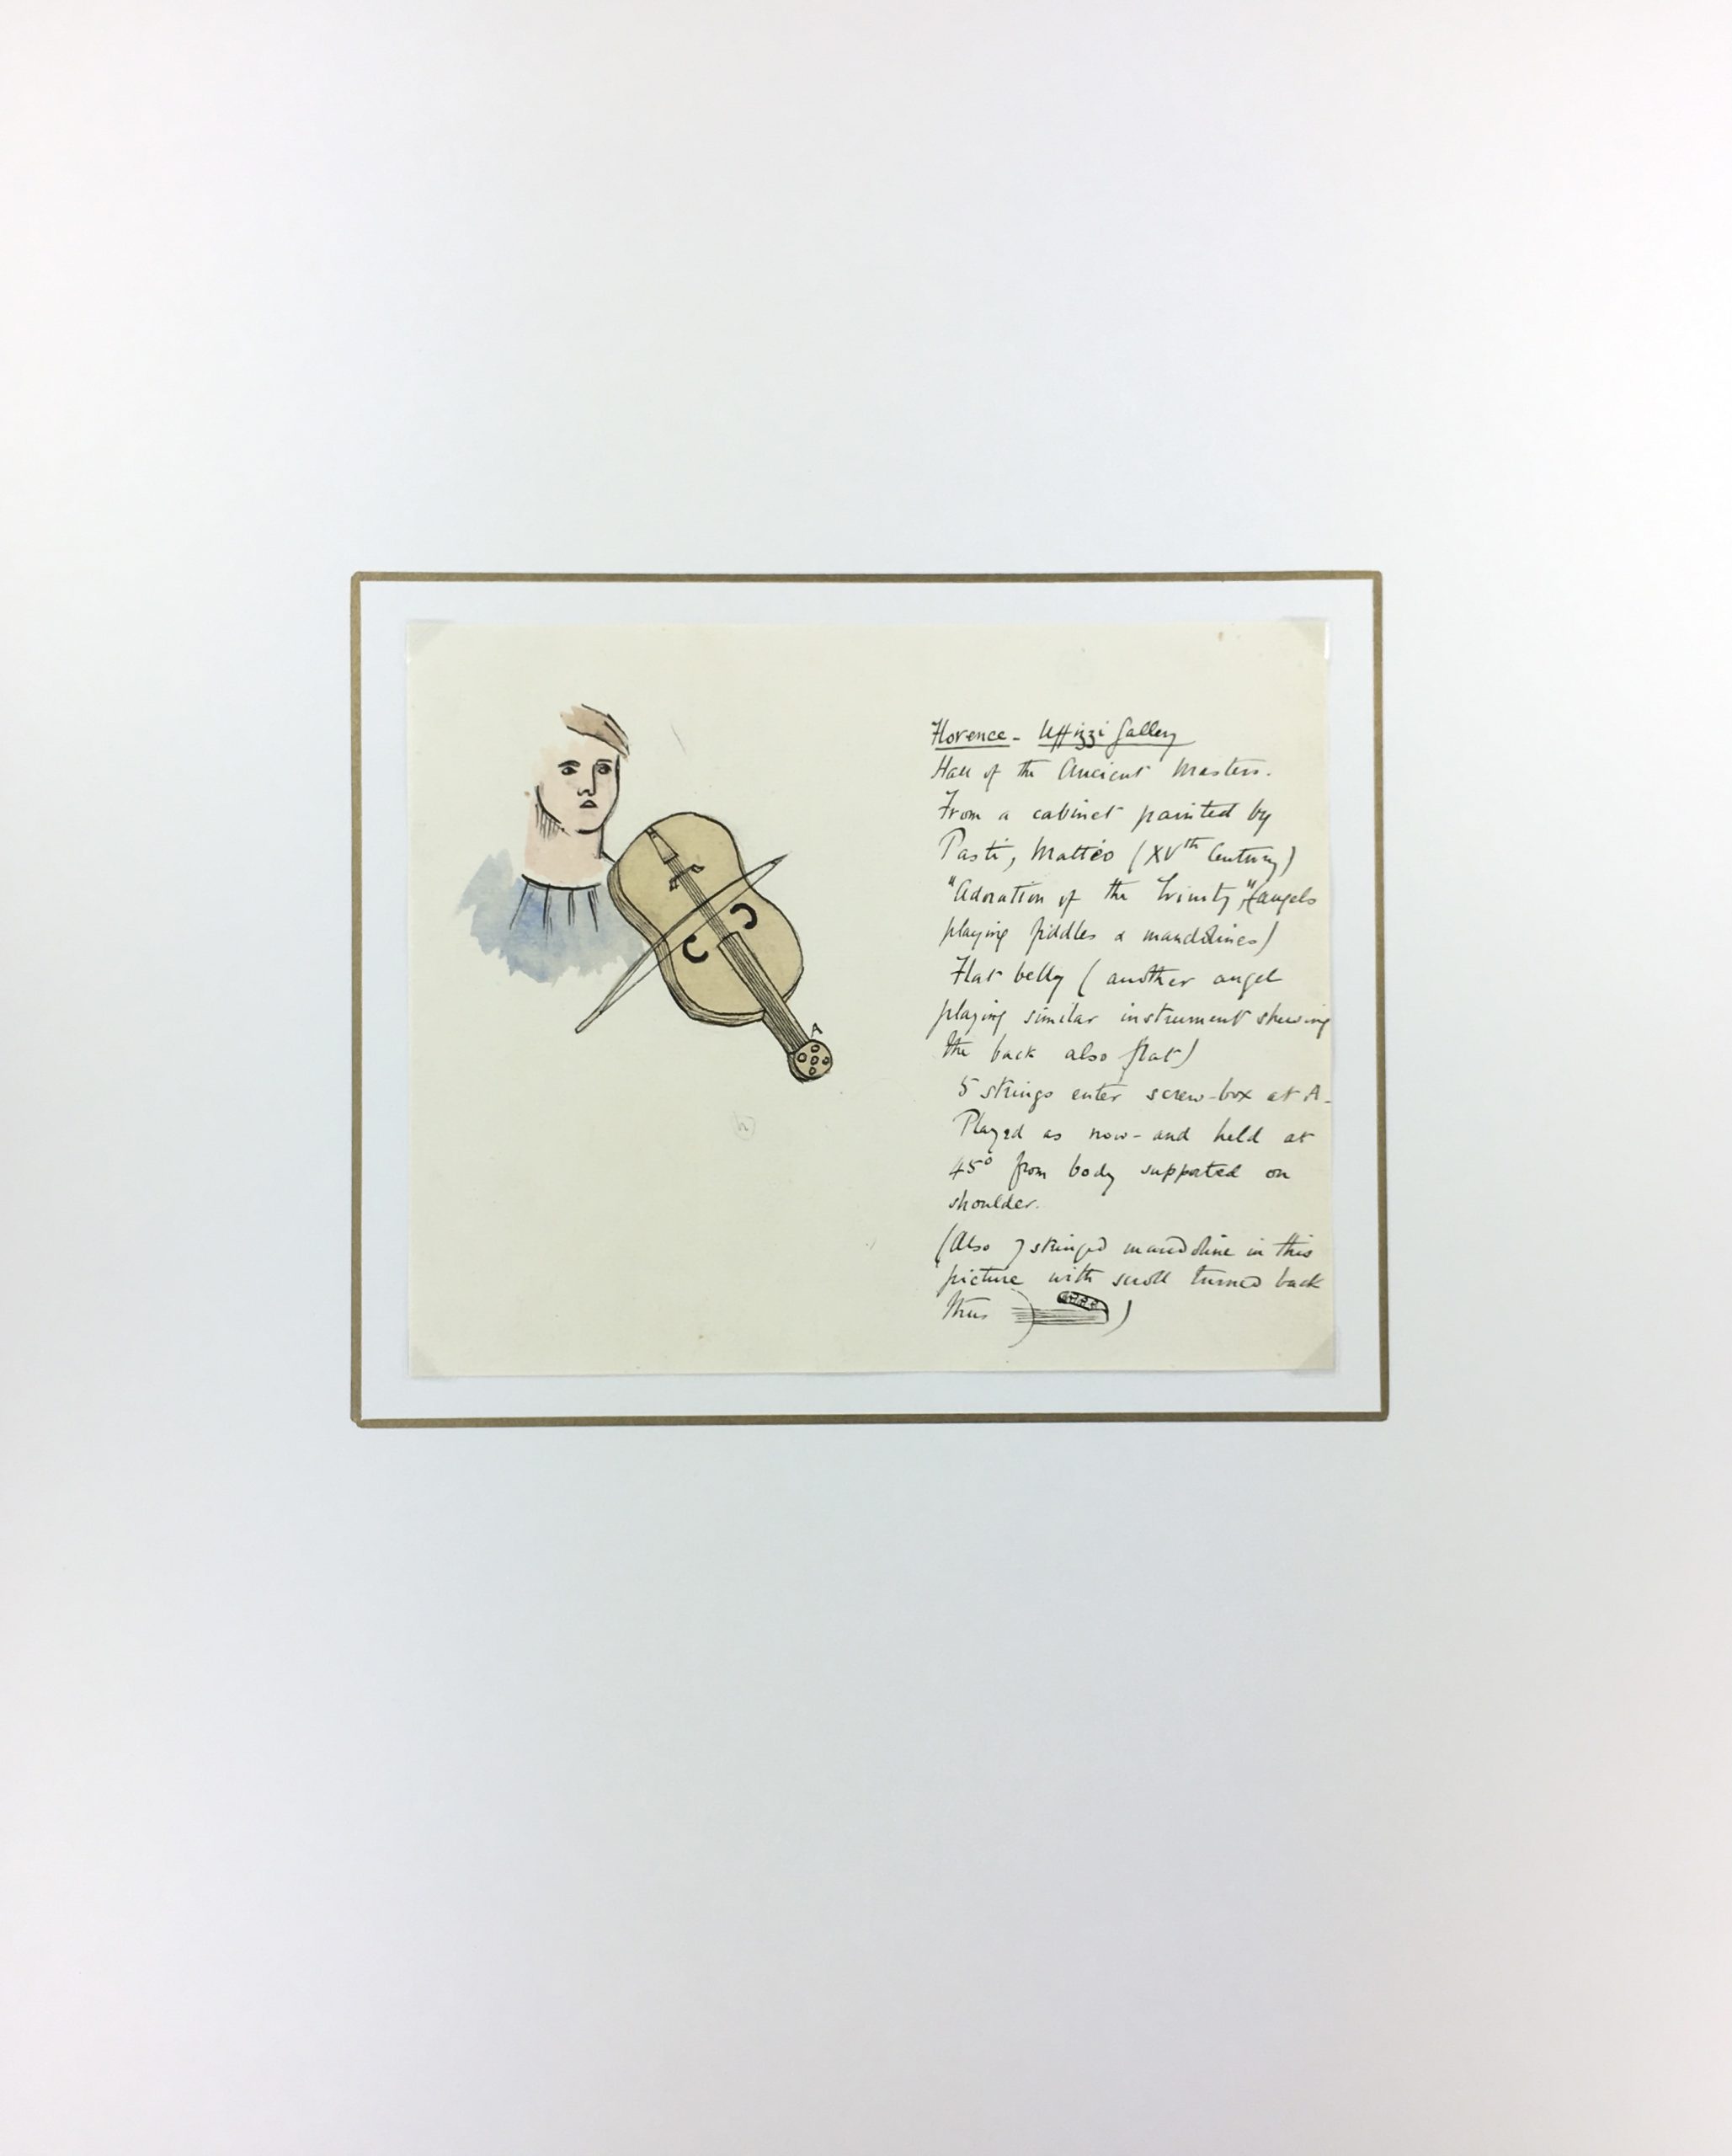 A
Florence - Uffizzi Gallery
Hall of the Ancient Masters.
From a cabinet painted by
Pasti, Matteo (XVth Century)
"Adoration of the Trinity" (angels
playing fiddles & mandolines)
Flat belly (another angel
playing similar instrument shewing
the back also flat)
5 strings enter screw-box at A -
Played as now - and held at
45° from body supported on
shoulder.
(Also 7 stringed mandoline in this
picture with scroll turned back
thus )